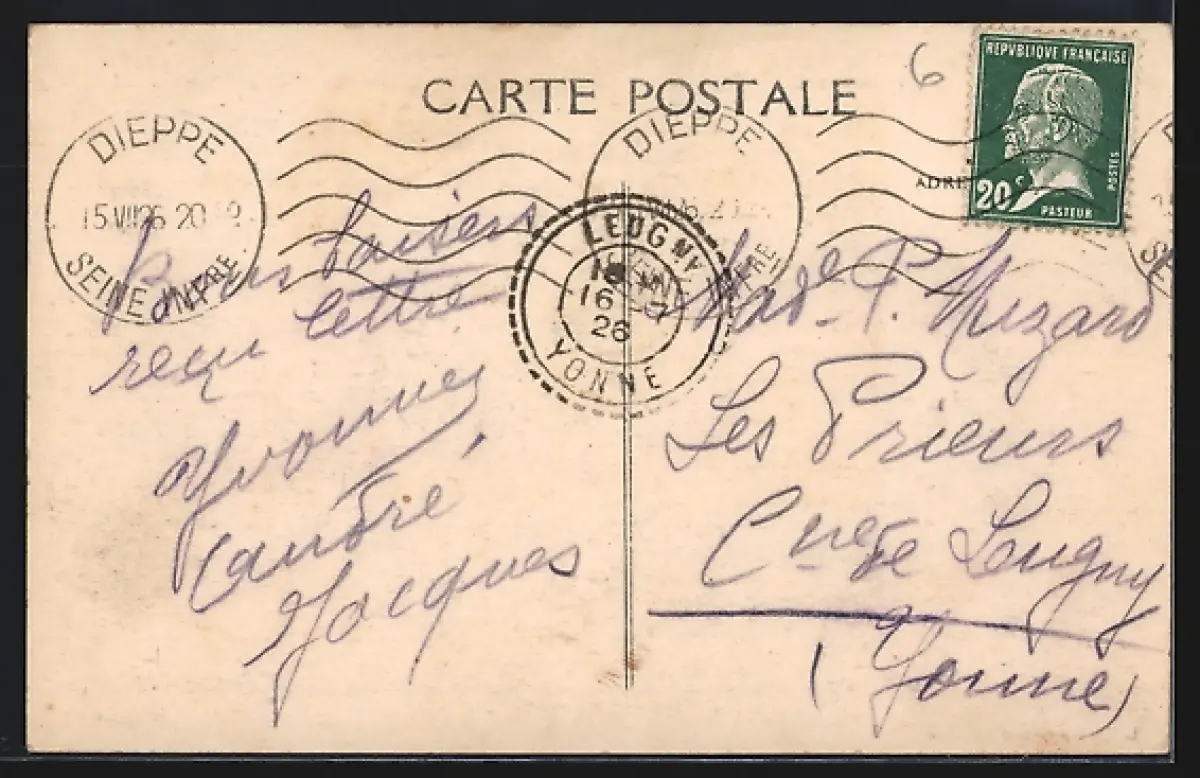 6
REPVBLIQUE FRANÇAISE
CARTE POSTALE
20c
POSTES
PASTEUR
ADRE
DIEPPE
15 VII 26 20
SEINE INFRE
DIEPPE
LEUGNY
16
26
YONNE
Bons baisers
reçu lettre
Yvonne
André
Jacques
Made P. Mizard
Les Prieurs
Cne de Leugny
(Yonne)